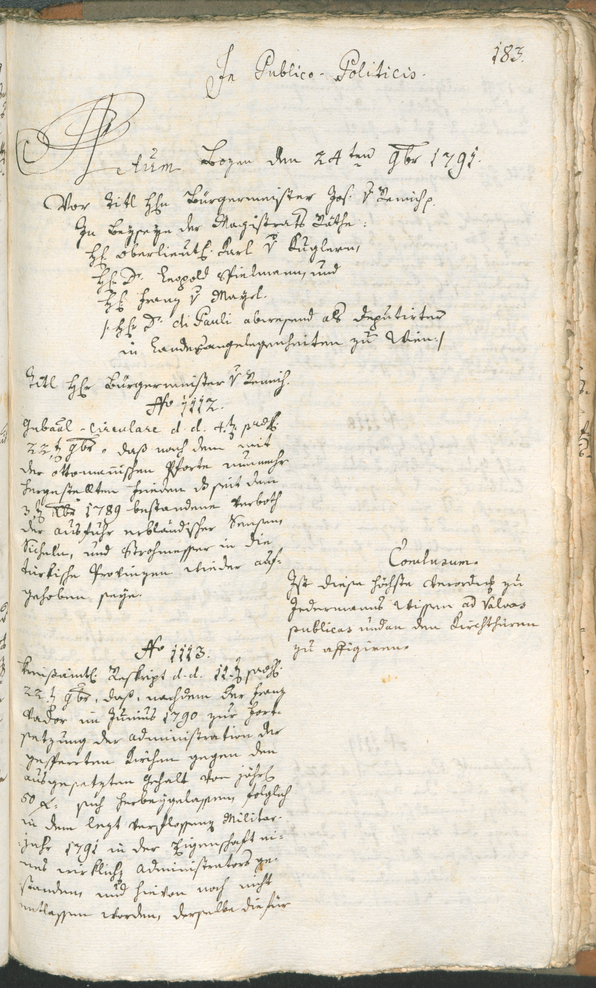 183.
In Publico-Politicis.
Actum Bozen den 24ten 9br 1791.
Vor Titl Hrn Bürgermeister Jos. v
In Beyseyn der Magistrats Räthe:
Hr Oberlieuth. Karl v Kuglern,
Hr Dr. Leopold Spielmann, und
Hr Franz v Mayrl.
/: Hr Dr. di Pauli abwesend als Deputirter
in Landesangelegenheiten zu Wien :/
Titl Hr Bürgermeister v
No 1112.
Gubnal-Circulare d.d. 4t praes.
22t 9br, daß nach dem mit
der ottomanischen Pforte nunmehr
hergestellten Frieden das seit dem
3t Xbr 1789 bestandene Verboth
der Ausfuhr erbländischer Sensen,
Sicheln, und Strohmesser in die
türkische Provinzen wieder auf-
gehoben seye.
Conclusum.
Ist diese höchste Verordng zu
Jedermanns Wissen ad Valvas
publicas und an den Kirchthüren
zu affigieren.
No 1113.
Kreisämtl. Reskript d.d. 12t praes.
22t 9br, daß, nachdem der Franz
Vador im Junius 1790 zur Fort-
setzung der Administration der
gesperrten Kirchen gegen den
ausgesetzten Gehalt von jährl
50 f. sich herbeygelassen, folglich
in dem letzt verflossenen Militar-
jahr 1791 in der Eigenschaft ei-
nes wirklich Administrators ge-
standen, und hievon noch nicht
entlassen worden, derselbe die für